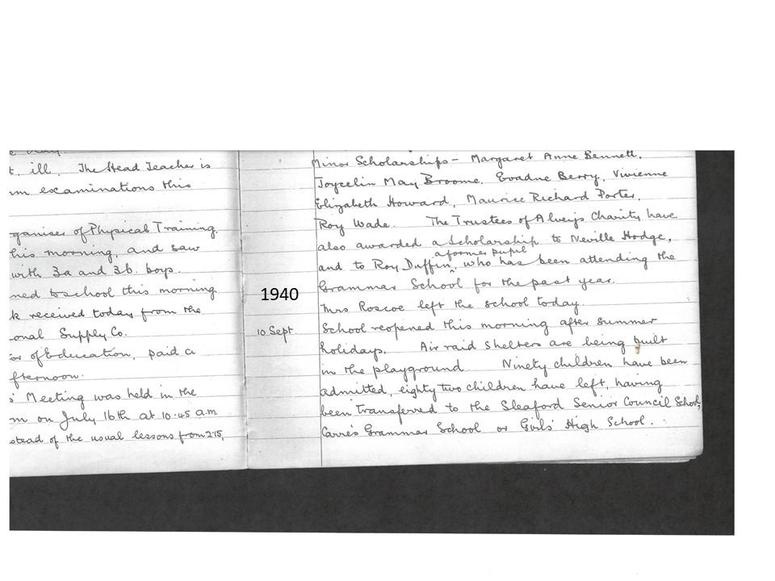 t. ill. The Head Teacher is
m examinations this
ganiser of Physical Training
his morning, and saw
with 3a and 3b boys.
ned to school this morning
k received today from the
onal Supply Co.
or of Education, paid a
fternoon.
s' Meeting was held in the
m on July 16th at 10.45 am
stead of the usual lessons from 2.15,
1940
10 Sept
Minor Scholarships – Margaret Anne Bennett,
Joycelin May Broome, Evadne Berry, Vivienne
Elizabeth Howard, Maurice Richard Porter,
Roy Wade. The Trustees of Alveys Charity have
also awarded a Scholarship to Neville Hodge,
a former pupil
and to Roy Duffin ^ who has been attending the
Grammar School for the past year.
Mrs Roscoe left the school today.
School reopened this morning after summer
holidays. Air raid shelters are being built
in the playground Ninety children have been
admitted, eighty two children have left, having
been transferred to the Sleaford Senior Council School,
Carre's Grammar School or Girls' High School.